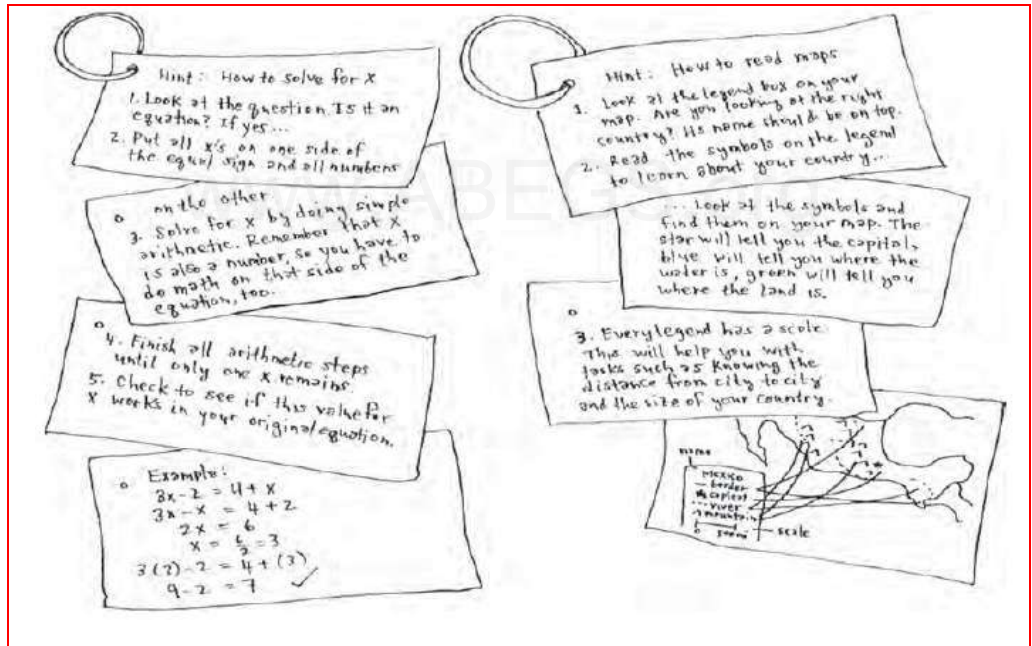 Hint: How to solve for x
1. Look at the question. Is it an
equation? If yes...
2. Put all x's on one side of
the equal sign and all numbers
on the other
3. Solve for x by doing simple
arithmetic. Remember that x
is also a number, so you have to
do math on that side of the
equation, too.
4. Finish all arithmetic steps
until only one x remains.
5. Check to see if this value for
x works in your original equation.
Example:
3x - 2 = 4 + x
3x - x = 4 + 2
2x = 6
x = 6/2 = 3
3(3) - 2 = 4 + (3)
9 - 2 = 7 ✓
Hint: How to read maps
1. Look at the legend box on your
map. Are you looking at the right
country? Its name should be on top.
2. Read the symbols on the legend
to learn about your country...
... Look at the symbols and
find them on your map. The
star will tell you the capital,
blue will tell you where the
water is, green will tell you
where the land is.
3. Every legend has a scale
This will help you with
tasks such as knowing the
distance from city to city
and the size of your country.
name
Mexico
border
capital
river
mountain
0
scale
www.ABEGS.org